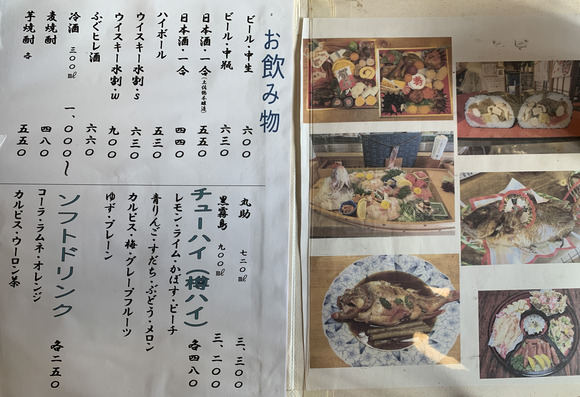 お飲み物
ビール・中生 六〇〇
ビール・中瓶 六三〇
日本酒・一合(土佐鶴本醸造) 五五〇
日本酒・一合 四四〇
ハイボール 五三〇
ウイスキー水割・s 六三〇
ウイスキー水割・w 九〇〇
ふぐヒレ酒 六六〇
冷酒 三〇〇ml 一、〇〇〇〜
麦焼酎 四八〇
芋焼酎 五五〇
丸助 七二〇ml 三、三〇〇
黒霧島 九〇〇ml 三、二〇〇
チューハイ(樽ハイ) 各四八〇
レモン・ライム・かぼす・ピーチ
青りんご・すだち・ぶどう・メロン
カルピス・梅・グレープフルーツ
ゆず・プレーン
ソフトドリンク 各二五〇
コーラ・ラムネ・オレンジ
カルピス・ウーロン茶